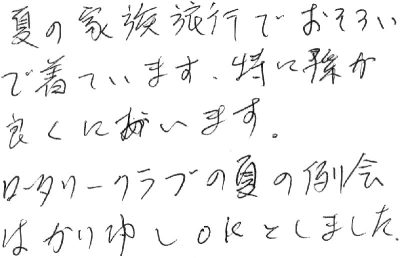 夏の家族旅行でおそろい
で着ています、特に孫が
良くにあいます。
ロータリークラブの夏の例会
はかりゆしOKとしました.